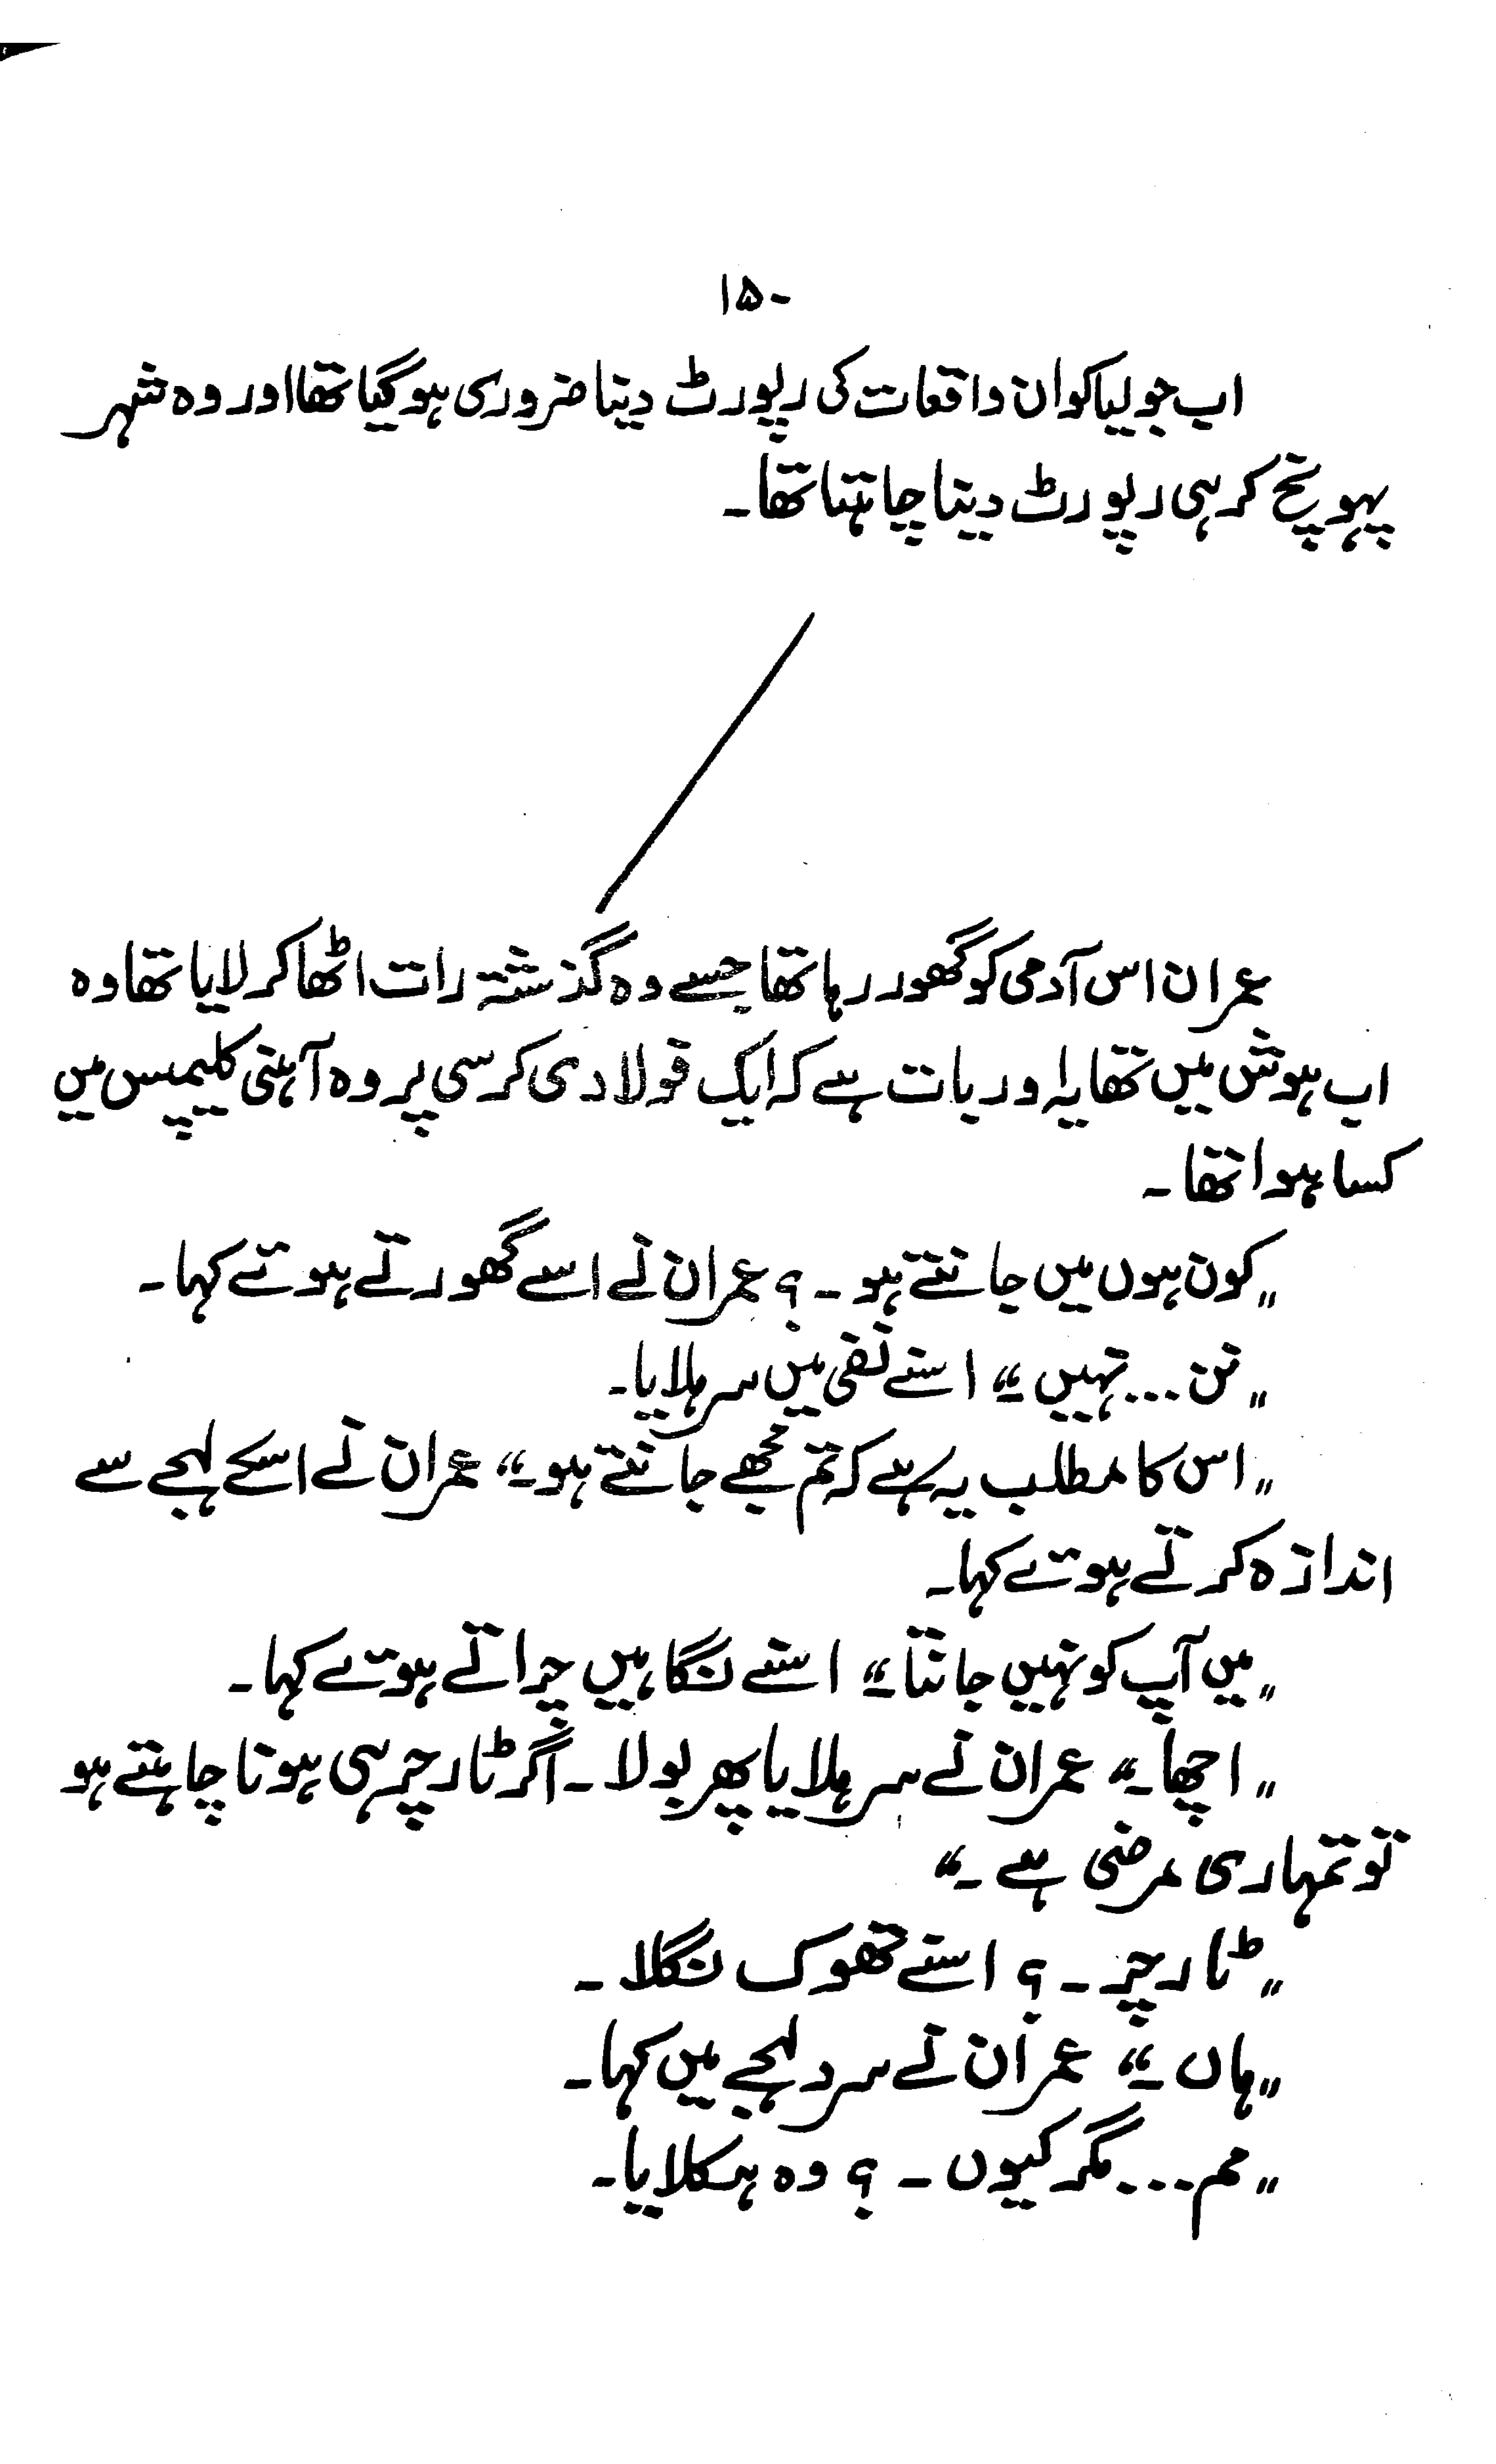 ۱۵۰
اب جولیا کو ان واقعات کی رپورٹ دینا ضروری ہو گیا تھا اور وہ شہر
پہونچ کر ہی رپورٹ دینا چاہتا تھا۔
عمران اس آدمی کو گھور رہا تھا جسے وہ گذشتہ رات اٹھا کر لایا تھا وہ
اب ہوش میں تھا یہ اور بات ہے کہ ایک فولادی کرسی پر وہ آہنی کلیمپس میں
کسا ہوا تھا۔
”کون ہوں میں جانتے ہو۔؟ عمران نے اسے گھورتے ہوئے کہا۔
”نن...نہیں۔“ اسنے نفی میں سر ہلایا۔
”اس کا مطلب یہ ہے کہ تم مجھے جانتے ہو۔“ عمران نے اسکے لہجے سے
اندازہ کرتے ہوئے کہا۔
”میں آپ کو نہیں جانتا۔“ اسنے نگاہیں چراتے ہوئے کہا۔
”اچھا۔“ عمران نے سر ہلایا پھر بولا۔ اگر ٹارچر ہی ہونا چاہتے ہو
تو تمہاری مرضی ہے۔“
”ٹارچر۔؟ اسنے تھوک نگلا۔
”ہاں۔“ عمران نے سرد لہجے میں کہا۔
”مم...مگر کیوں۔؟ وہ ہکلایا۔